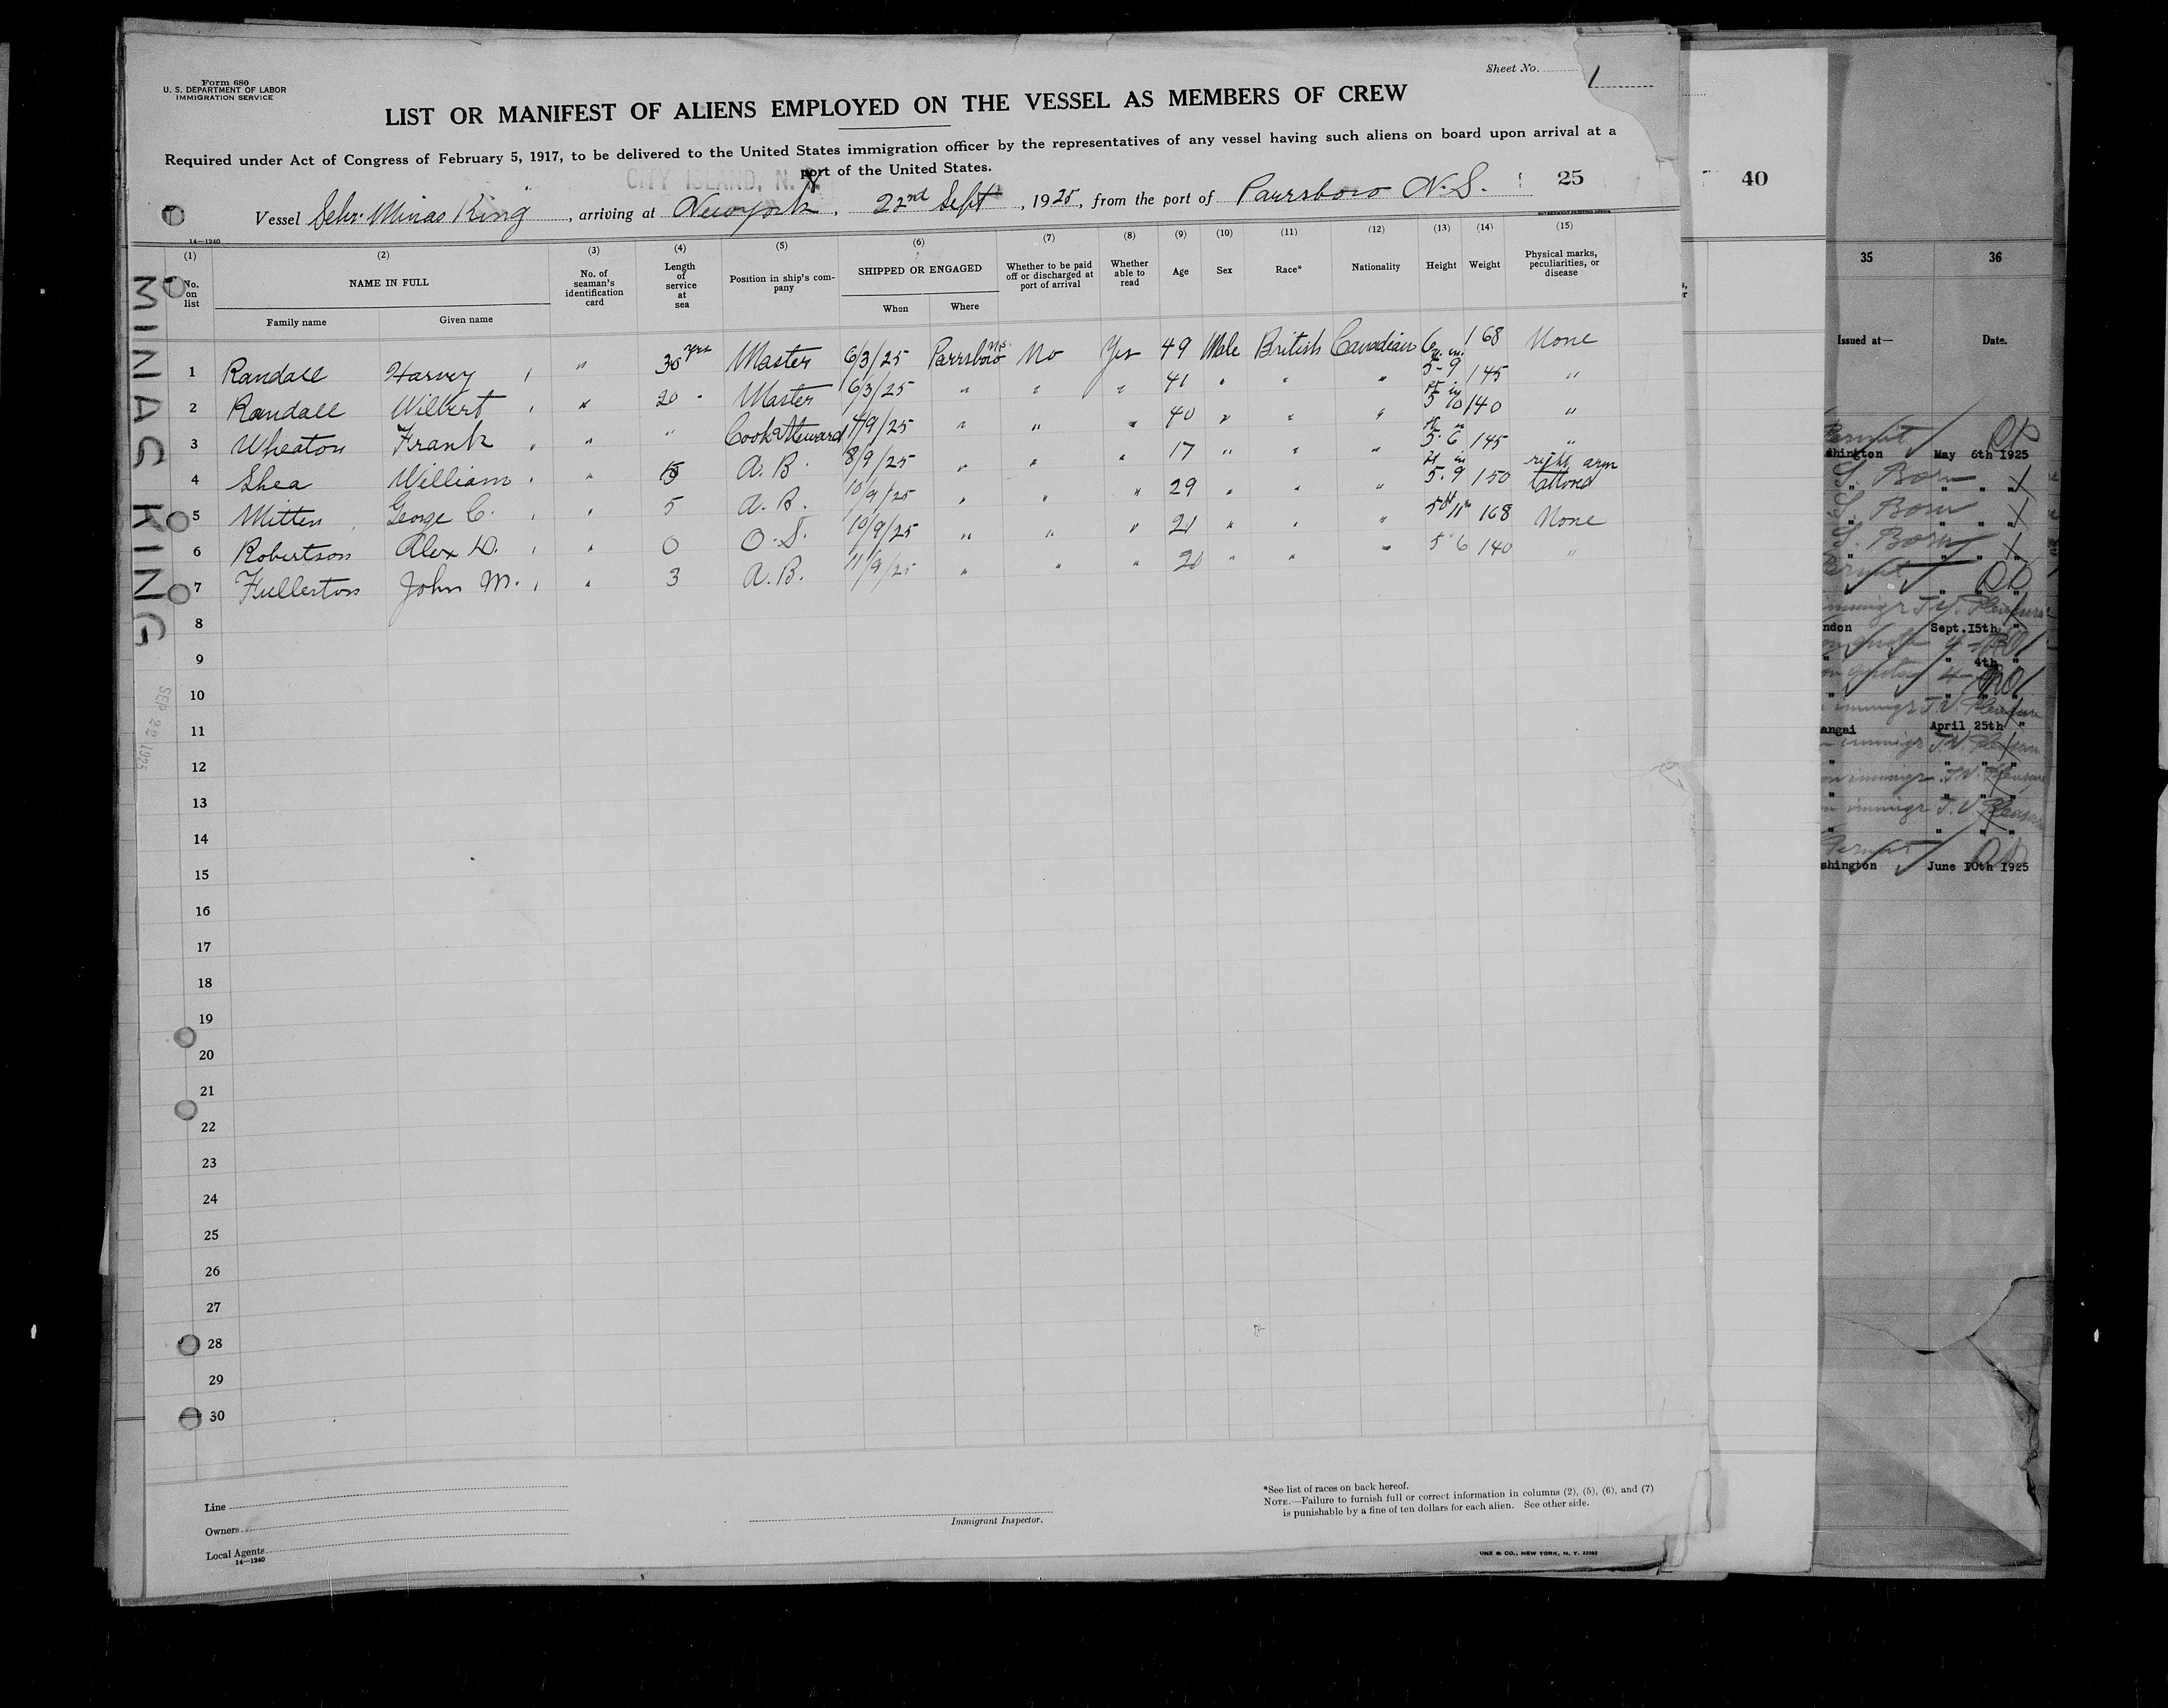 Form 680
U. S. DEPARTMENT OF LABOR
IMMIGRATION SERVICE
Sheet No. 1
LIST OR MANIFEST OF ALIENS EMPLOYED ON THE VESSEL AS MEMBERS OF CREW
Required under Act of Congress of February 5, 1917, to be delivered to the United States immigration officer by the representatives of any vessel having such aliens on board upon arrival at a
port of the United States.
CITY ISLAND, N. Y.
Vessel Schr. "Minas King", arriving at New York, 22nd Sept, 1925, from the port of Parrsboro N.S. 25
14—1240
(1) (2) (3) (4) (5) (6) (7) (8) (9) (10) (11) (12) (13) (14) (15)
No. on list NAME IN FULL Family name Given name No. of seaman's identification card Length of service at sea Position in ship's company SHIPPED OR ENGAGED When Where Whether to be paid off or discharged at port of arrival Whether able to read Age Sex Race* Nationality Height Weight Physical marks, peculiarities, or disease
1 Randall Harvey " 30 yrs Master 6/3/25 Parrsboro N.S. No Yes 49 Male British Canadian 6 168 None
2 Randall Wilbert " 20 " Master 6/3/25 " " " 41 " " " 5-9 145 "
3 Wheaton Frank " " Cook & Steward 4/9/25 " " " 40 " " " 5 10 140 "
4 Shea William " A.B. 8/9/25 " " " 17 " " " 5.6 145 "
5 Mitten George C. " 5 A.B. 10/9/25 " " " 29 " " " 5.9 150 right arm tattooed
6 Robertson Alex D. " 0 O.S. 10/9/25 " " " 21 " " " 5 ft 11 in 168 None
7 Fullerton John M. " 3 A.B. 11/9/25 " " " 20 " " " 5 6 140 "
8
9
10
11
12
13
14
15
16
17
18
19
20
21
22
23
24
25
26
27
28
29
30
MINAS KING
SEP 22 1925
Line
Owners
Local Agents
14—1240
Immigrant Inspector.
*See list of races on back hereof.
NOTE.—Failure to furnish full or correct information in columns (2), (5), (6), and (7)
is punishable by a fine of ten dollars for each alien. See other side.
UNZ & CO., NEW YORK, N. Y.
40
35 36
Issued at— Date.
Permit
shington May 6th 1925
S. Born " " "
S. Born " " "
S. Born " " "
Permit
ndon Sept.15th "
" " 4th "
angai April 25th "
Permit
shington June 10th 1925